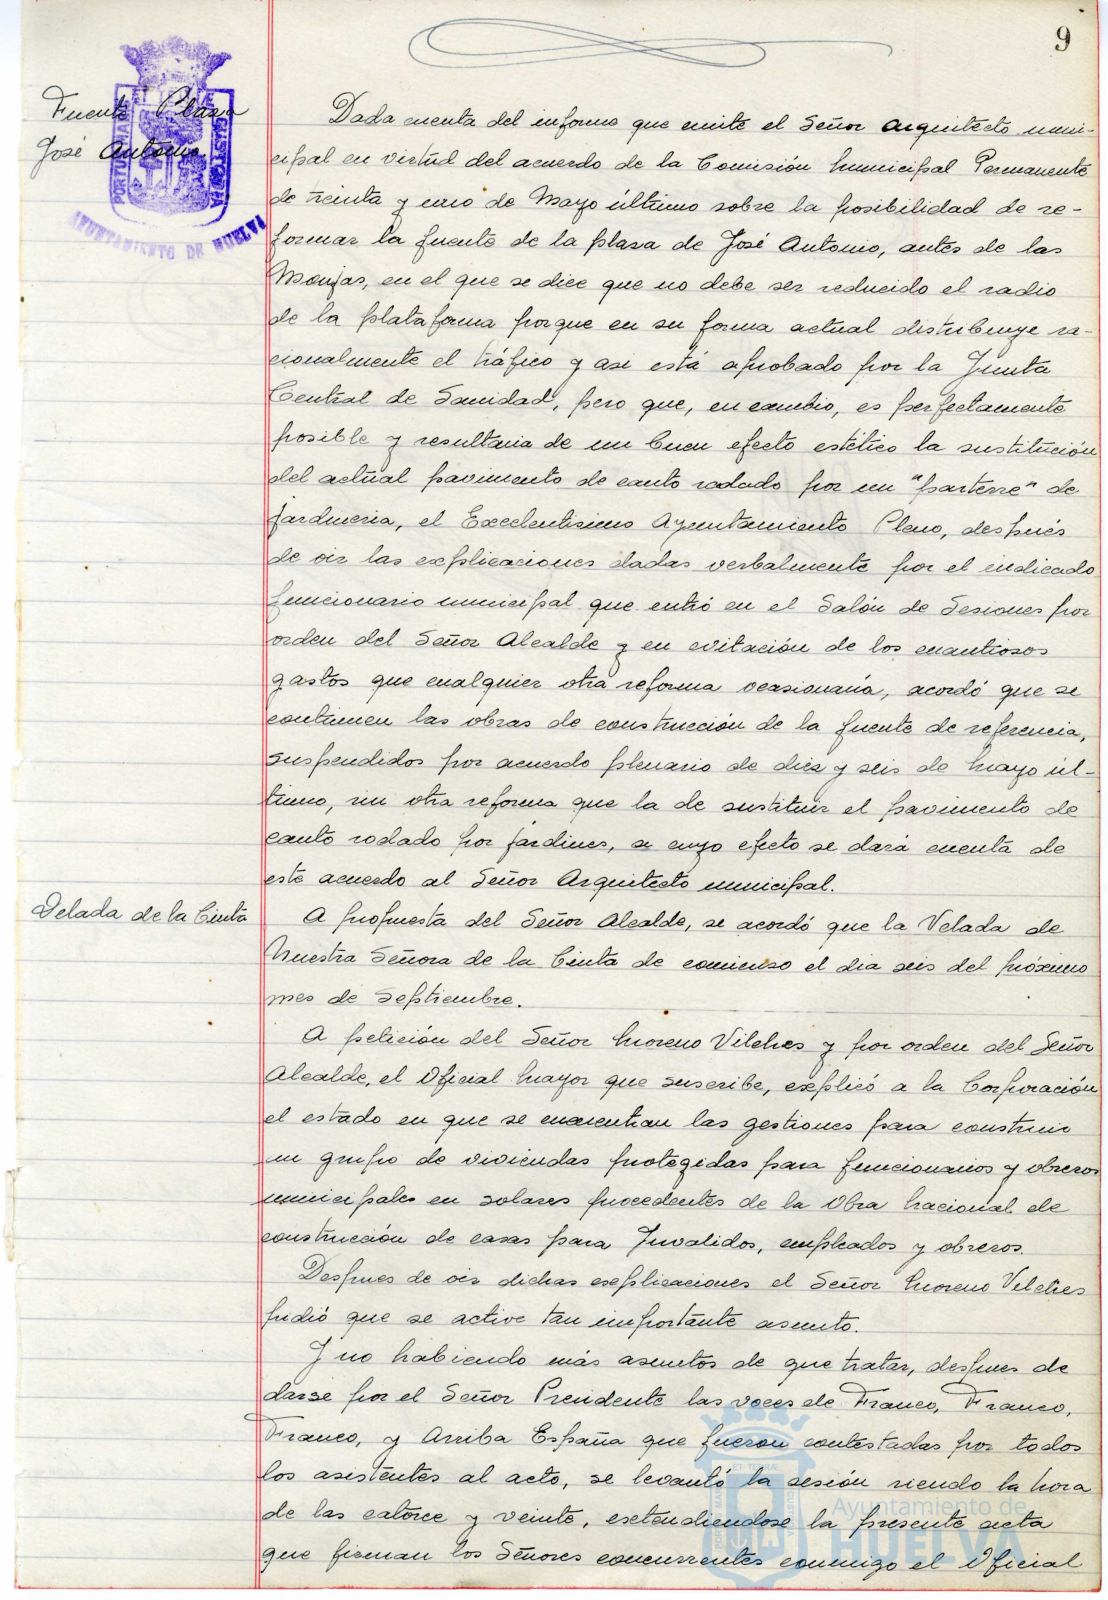 9
Fuente Plaza
José Antonio.
PORTUS MARIS ET TERRAE CUSTODIA
AYUNTAMIENTO DE HUELVA
Dada cuenta del informe que emite el Señor Arquitecto muni-
cipal en virtud del acuerdo de la Comisión Municipal Permanente
de treinta y uno de Mayo último sobre la posibilidad de re-
formar la fuente de la plaza de José Antonio, antes de las
Monjas, en el que se dice que no debe ser reducido el radio
de la plataforma porque en su forma actual distribuye ra-
cionalmente el tráfico y asi está aprobado por la Junta
Central de Sanidad, pero que, en cambio, es perfectamente
posible y resultaria de un buen efecto estético la sustitución
del actual pavimento de canto rodado por un "parterre" de
jardineria, el Excelentísimo Ayuntamiento Pleno, después
de oir las explicaciones dadas verbalmente por el indicado
funcionario municipal que entró en el Salón de Sesiones por
orden del Señor Alcalde y en evitación de los cuantiosos
gastos que cualquier otra reforma ocasionaría, acordó que se
continuen las obras de construcción de la fuente de referencia,
suspendidos por acuerdo plenario de diez y seis de Mayo úl-
timo, sin otra reforma que la de sustituir el pavimento de
canto rodado por jardines, a cuyo efecto se dará cuenta de
este acuerdo al Señor Arquitecto municipal.
Velada de la Cinta
A propuesta del Señor Alcalde, se acordó que la Velada de
Nuestra Señora de la Cinta de comienzo el dia seis del próximo
mes de Septiembre.
A petición del Señor Moreno Vilches y por orden del Señor
Alcalde, el Oficial Mayor que suscribe, explicó a la Corporación
el estado en que se encuentran las gestiones para construir
un grupo de viviendas protegidas para funcionarios y obreros
municipales en solares procedentes de la Obra Nacional de
construcción de casas para Inválidos, empleados y obreros.
Despues de oir dichas explicaciones el Señor Moreno Vilches
pidió que se active tan importante asunto.
Y no habiendo más asuntos de que tratar, despues de
darse por el Señor Presidente las voces de Franco, Franco,
Franco, y Arriba España que fueron contestadas por todos
los asistentes al acto, se levantó la sesión siendo la hora
de las catorce y veinte, extendiendose la presente acta
que firman los Señores concurrentes conmigo el Oficial
Ayuntamiento de
HUELVA